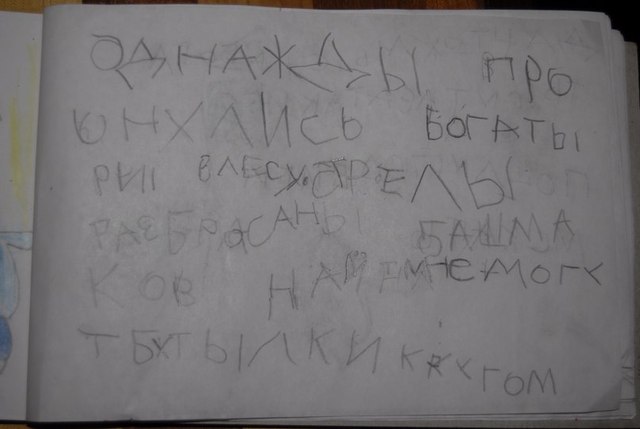 ОДНАЖДЫ ПРО
ЮНХЛИСЬ БОГАТЫ
РИI ВЛЕСУ. СТРЕЛЫ
РАЗБРОСАНЫ БАШМА
КОВ НАЙТИ НЕ МОГУ
Т БУТЫЛКИ КРУГОМ